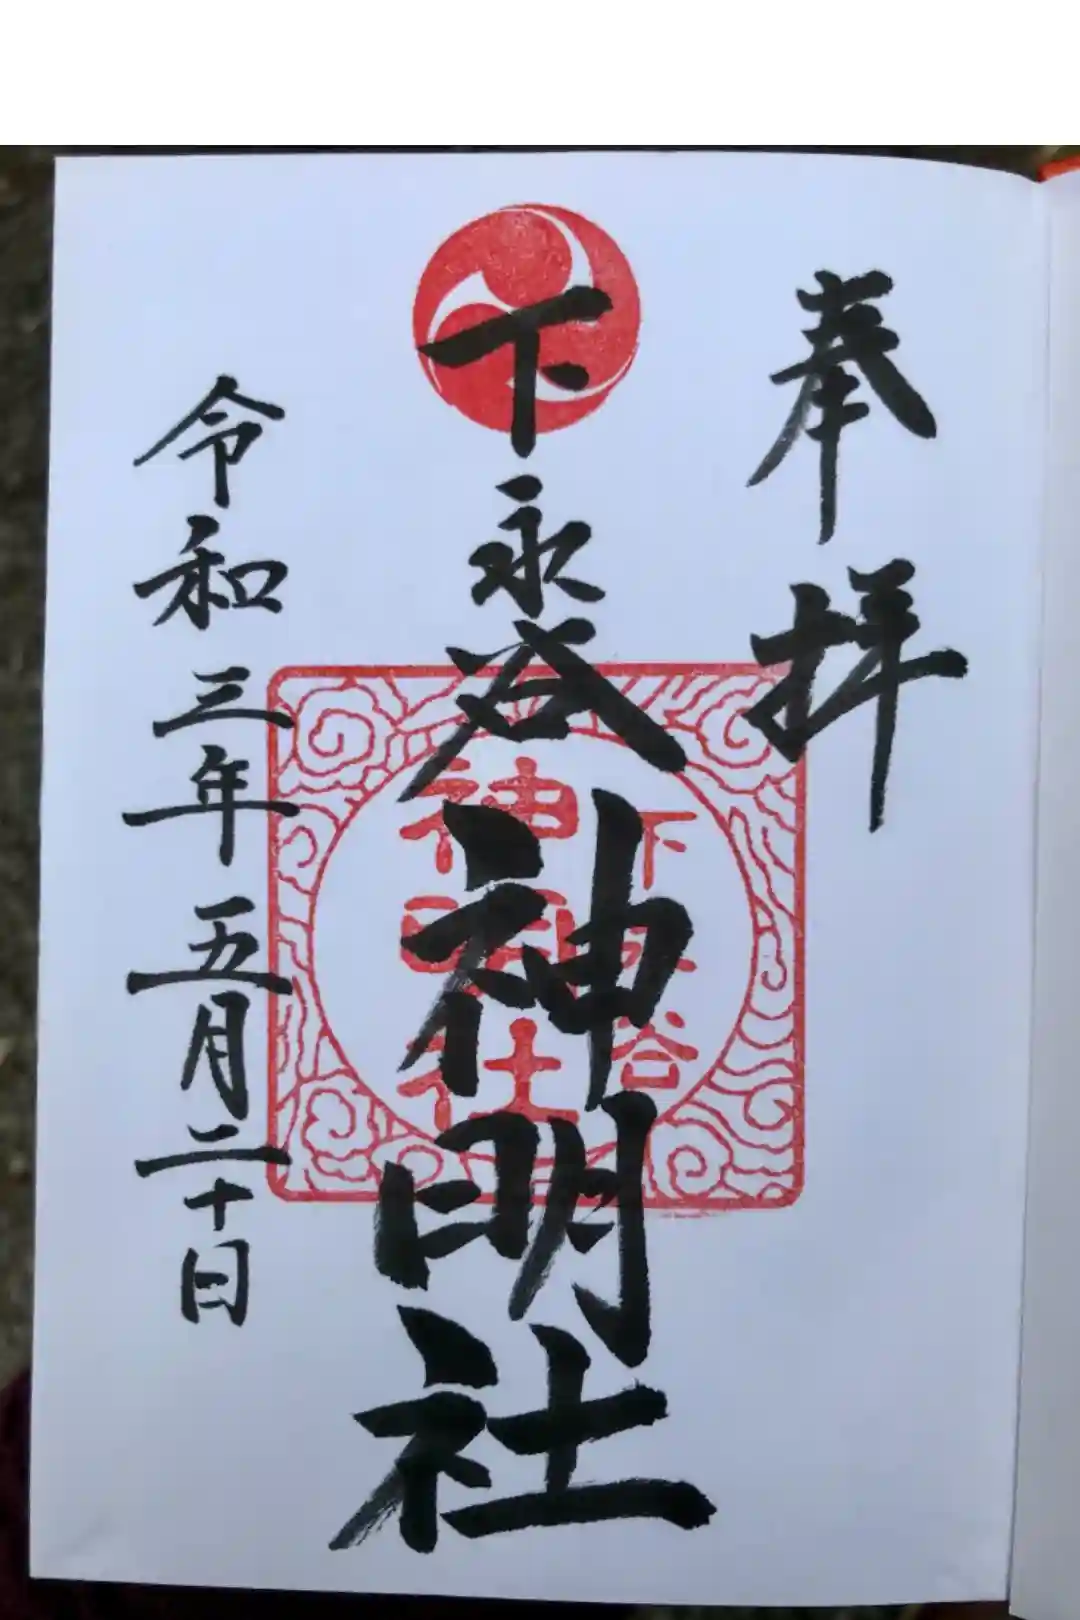 奉拝
下永谷神明社
下永谷
神明社
令和三年五月二十日